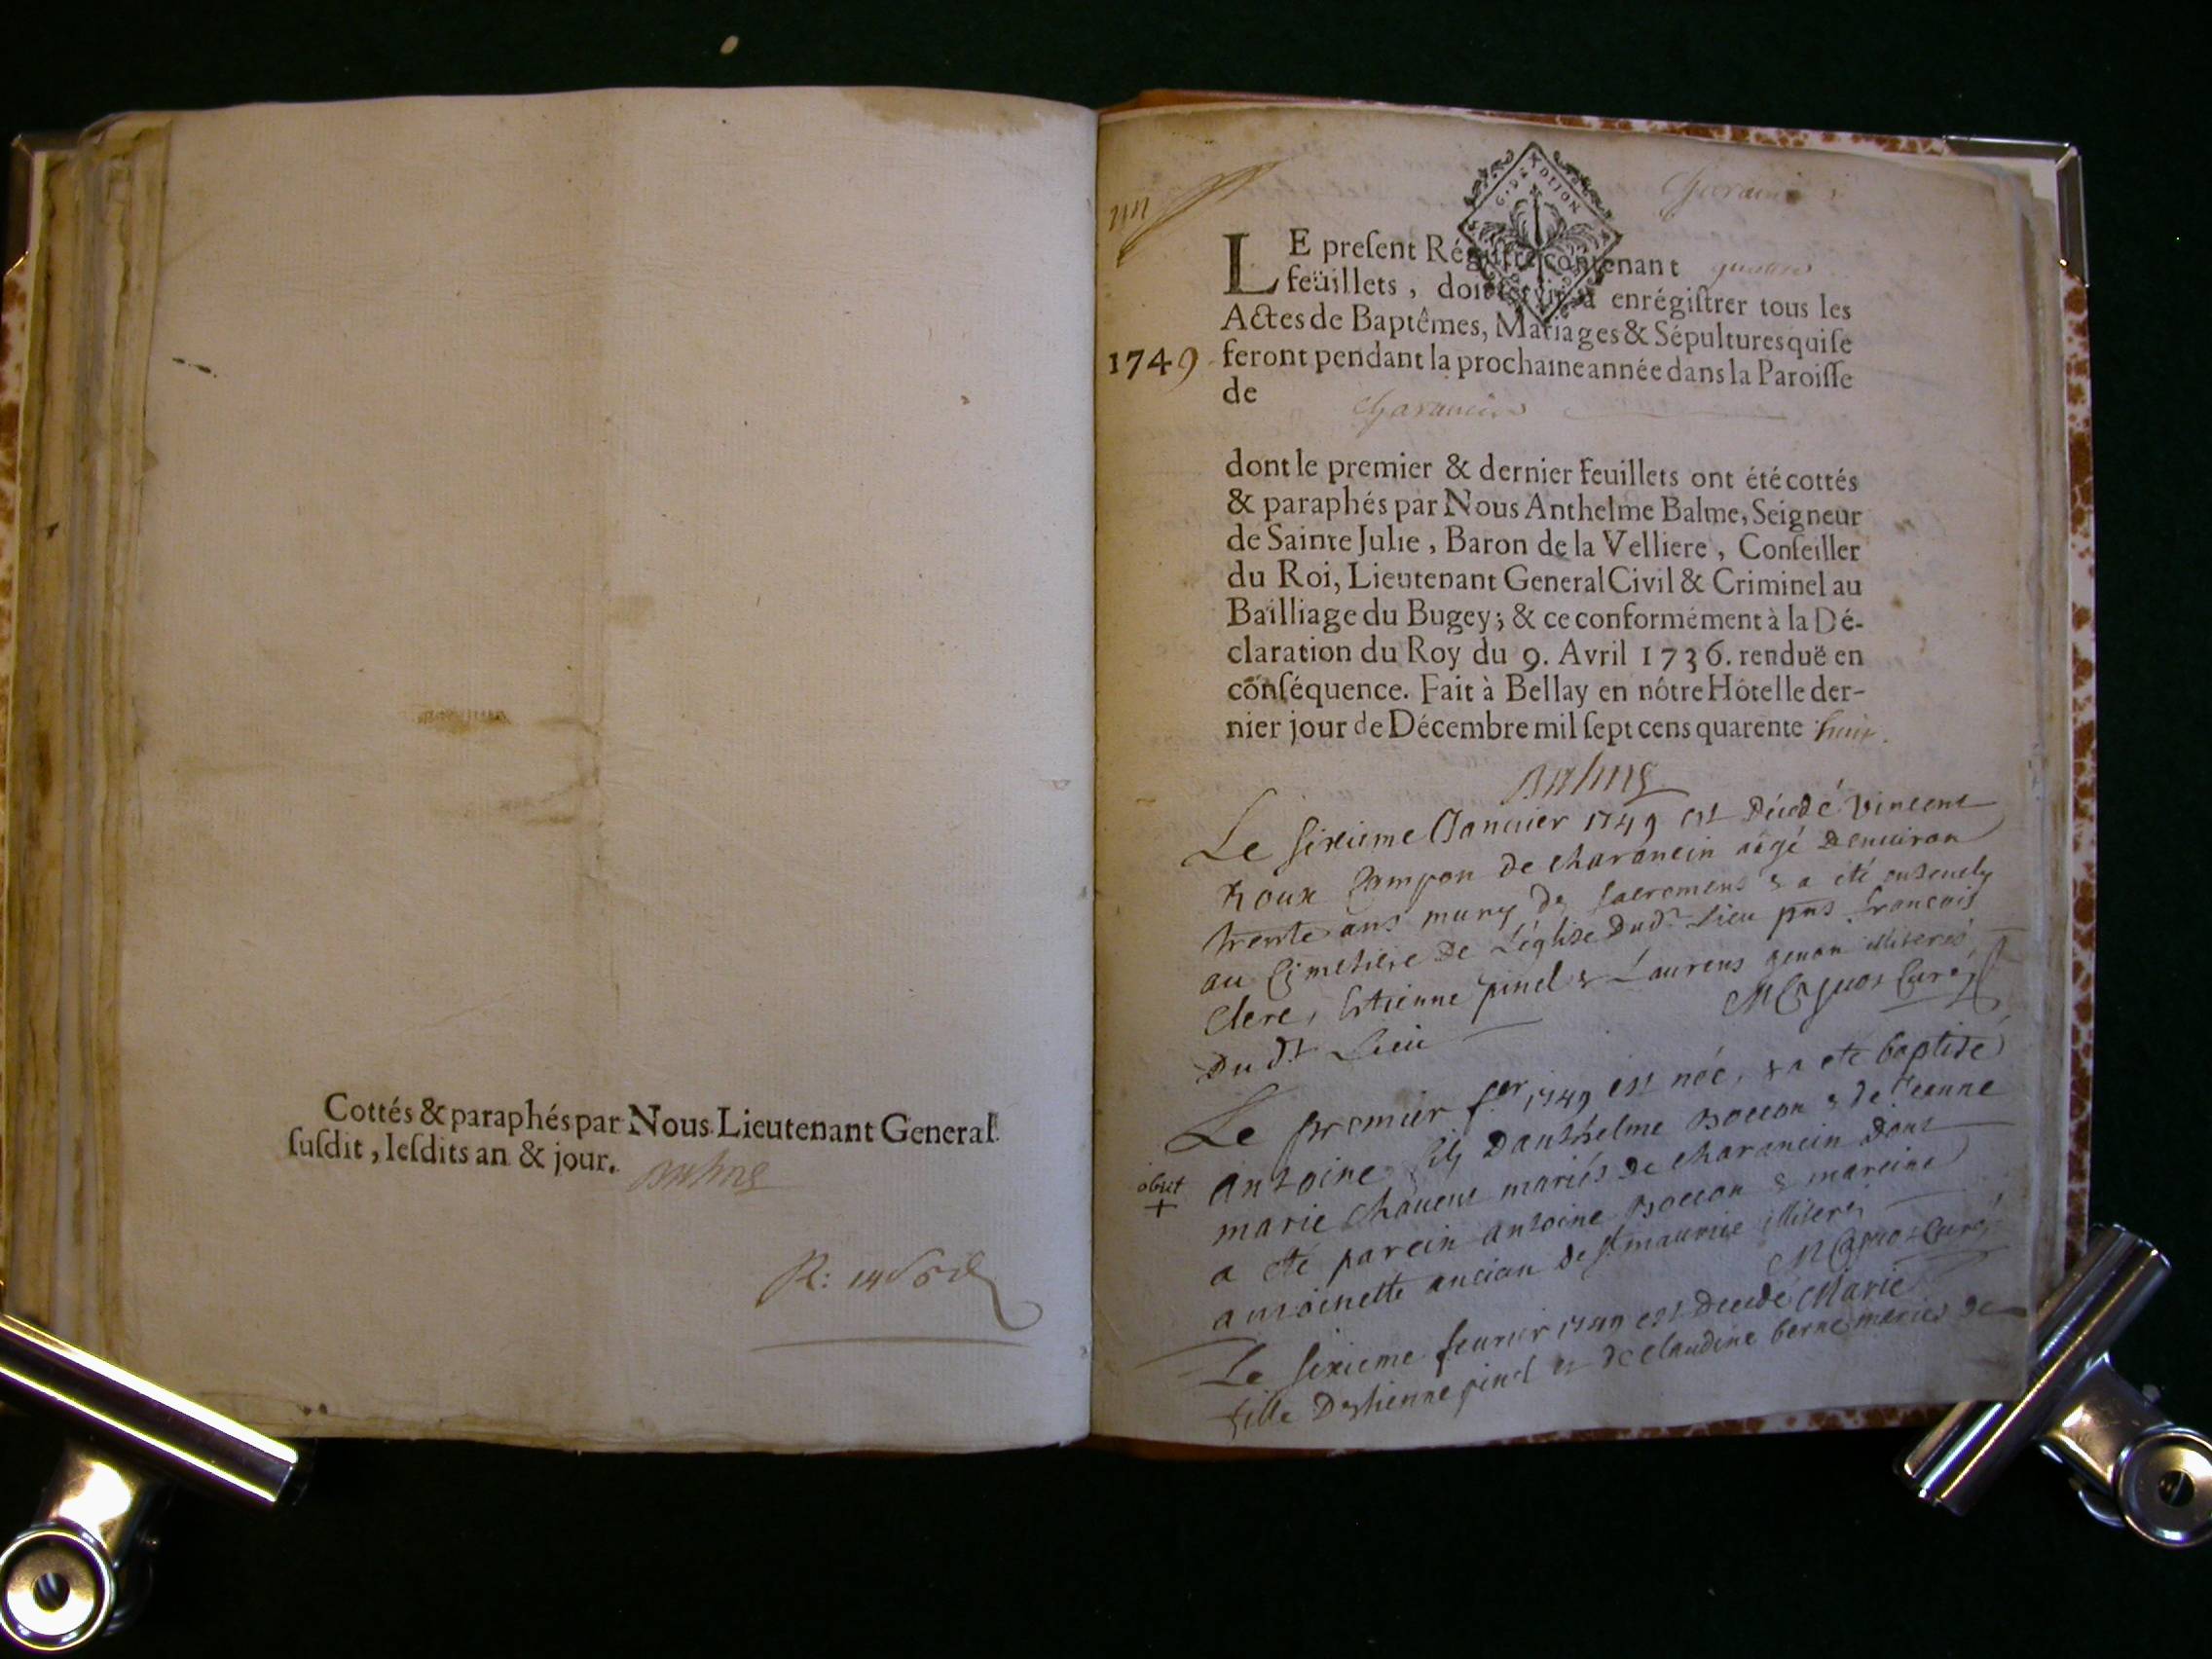 Cottés & paraphés par Nous Lieutenant General
ſuſdit, leſdits an & jour. Balme
Charancin
LE preſent Régiſtre contenant quatre
feüillets, doit ſervir à enrégiſtrer tous les
Actes de Baptêmes, Mariages & Sépultures qui ſe
1749 feront pendant la prochaine année dans la Paroiſſe
de Charancin
dont le premier & dernier feuillets ont été cottés
& paraphés par Nous Anthelme Balme, Seigneur
de Sainte Julie, Baron de la Velliere, Conſeiller
du Roi, Lieutenant General Civil & Criminel au
Bailliage du Bugey; & ce conformément à la Dé-
claration du Roy du 9. Avril 1736. renduë en
conſéquence. Fait à Bellay en nôtre Hôtel le der-
nier jour de Décembre mil ſept cens quarente huit.
Balme
Le sixieme Janvier 1749 est décedé vincent
Roux de charancin aâgé denuiron
trente ans muny des sacremens & a été enseuely
au Cimetiere de L'église dud.t Lieu pns francois
Clerc, Estienne pinel & Laurens genon illiterés
Du d.t Lieu Curé
Le premier f.er 1749 est néé, & a eté baptisé
obiit antoine fils d'anthelme Boccon & de Jeanne
+ marie Chauent mariés de charancin dont
a eté parein antoine Boccon & mareine
antoinette ancian de s.t maurice illiterés
Curé
Le sixieme feurier 1749 est decedé Marie
fille d'estienne pinel et de claudine berne mariés de